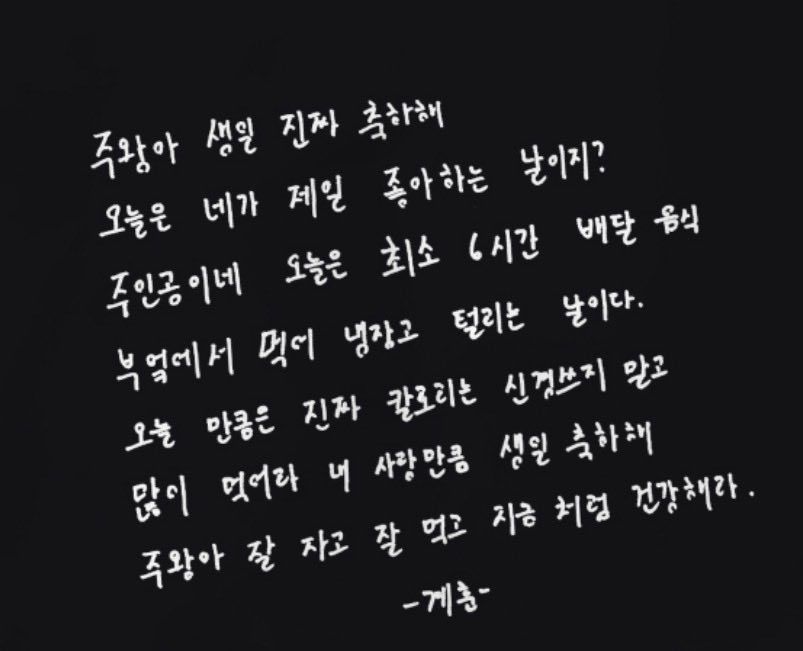 주왕아 생일 진짜 축하해
오늘은 네가 제일 좋아하는 날이지?
주인공이네 오늘은 최소 6시간 배달 음식
부엌에서 먹어 냉장고 털리는 날이다.
오늘 만큼은 진짜 칼로리는 신경쓰지 말고
많이 먹어라 내 사랑만큼 생일 축하해
주왕아 잘 자고 잘 먹고 지금 처럼 건강해라.
-계훈-